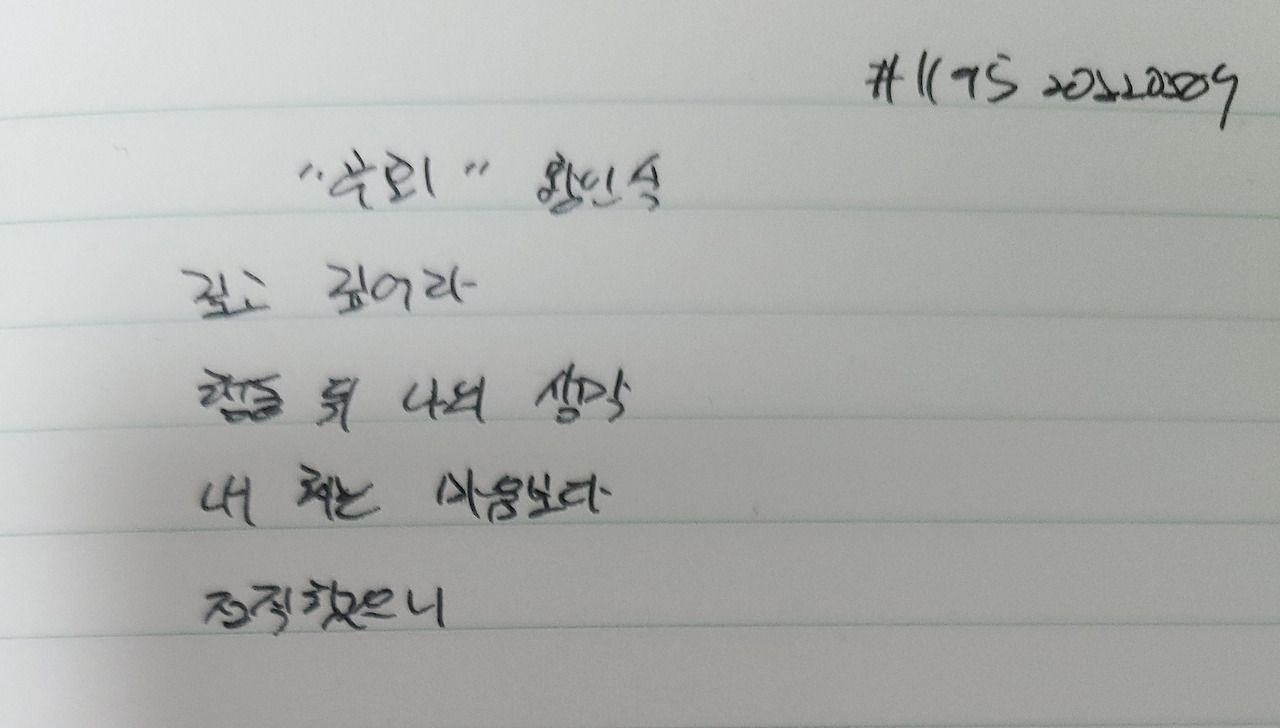 #1195 20220509
"후회" 황인숙
깊고 깊어라
뒤 나의 생각
내 혀는 마음보다
정직했으니